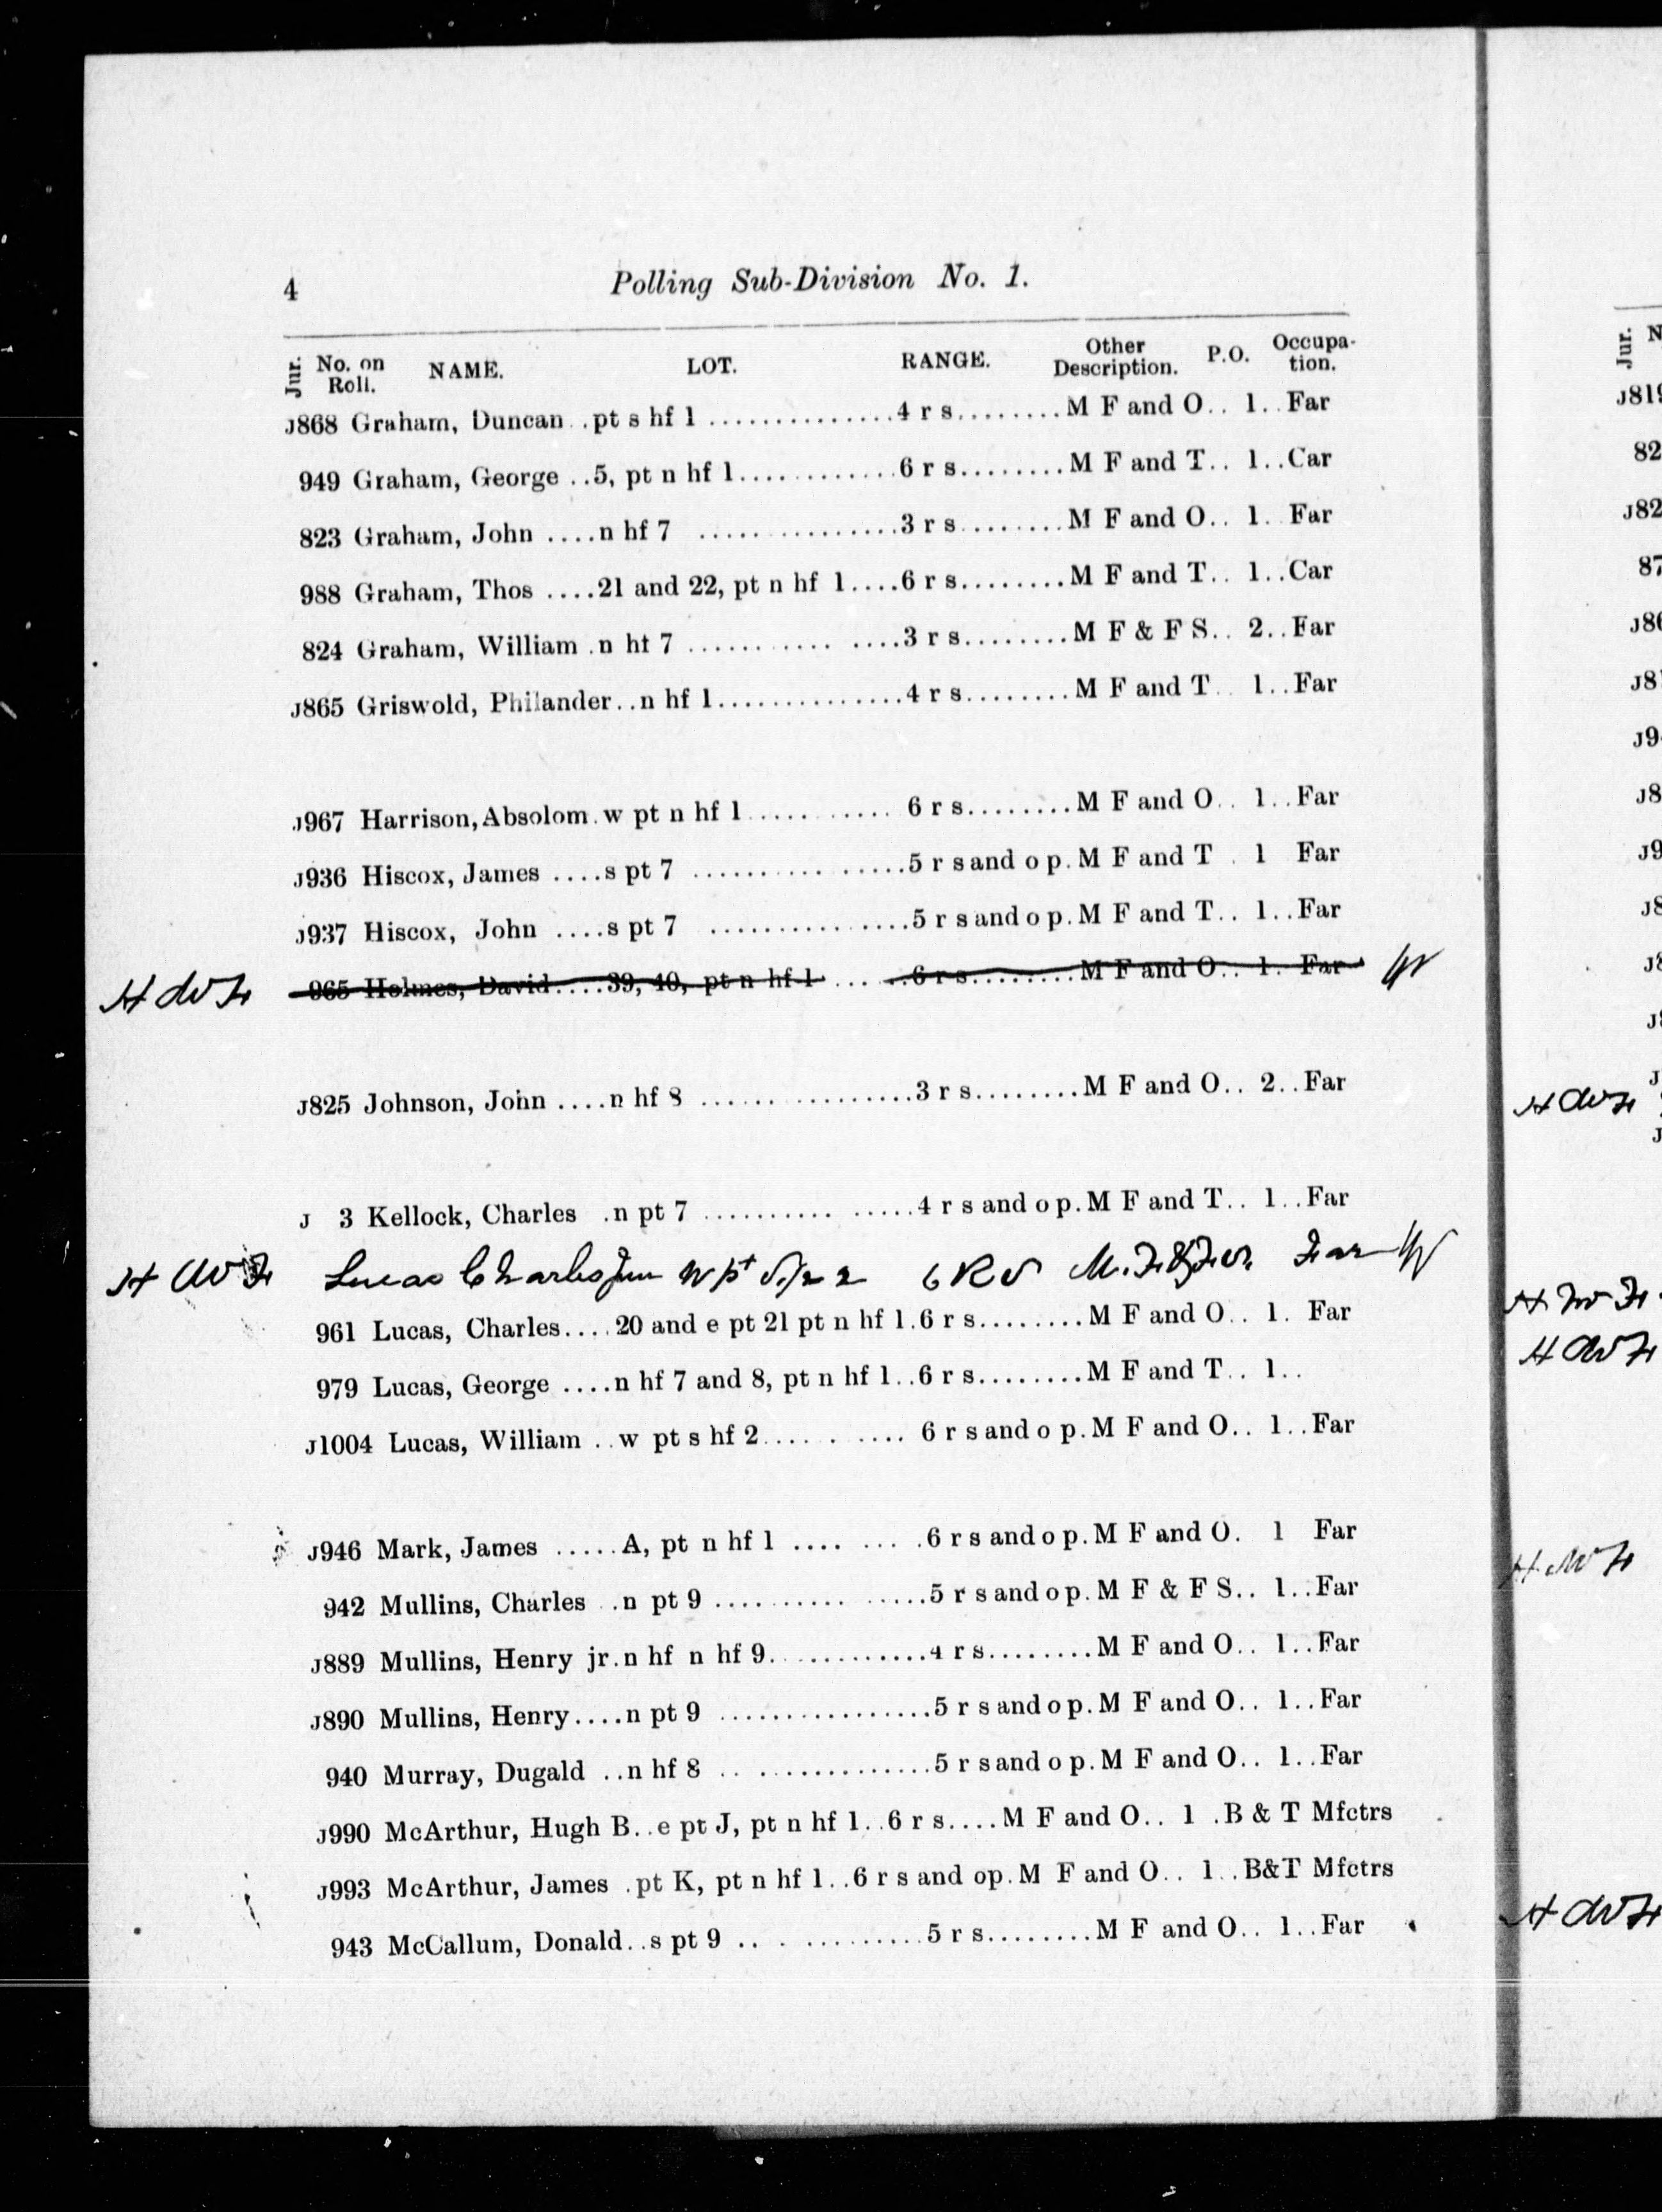 4 Polling Sub-Division No. 1.
Jur. No. on Roll. NAME. LOT. RANGE. Other Description. P.O. Occupa-tion.
J868 Graham, Duncan..pt s hf 1 ...............4 r s........M F and O.. 1..Far
949 Graham, George ..5, pt n hf 1............6 r s........M F and T.. 1..Car
823 Graham, John ....n hf 7 ................3 r s........M F and O.. 1. Far
988 Graham, Thos ....21 and 22, pt n hf 1....6 r s........M F and T.. 1..Car
824 Graham, William .n hf 7 ........... ....3 r s........M F & F S.. 2..Far
J865 Griswold, Philander..n hf 1...............4 r s........M F and T.. 1..Far
J967 Harrison, Absolom.w pt n hf 1........... 6 r s........M F and O.. 1..Far
J936 Hiscox, James ....s pt 7 ................5 r s and o p.M F and T . 1 Far
J937 Hiscox, John ....s pt 7 ................5 r s and o p.M F and T.. 1..Far
965 Holmes, David....39, 40, pt n hf 1.......6 r s........M F and O.. 1. Far
J825 Johnson, John ....n hf 8 .................3 r s........M F and O.. 2..Far
J 3 Kellock, Charles .n pt 7 .......... .....4 r s and o p.M F and T.. 1..Far
Lucas Charles Jun W pt S/2 2 6 R S M.F & F.S. Far
961 Lucas, Charles....20 and e pt 21 pt n hf 1.6 r s........M F and O.. 1. Far
979 Lucas, George ....n hf 7 and 8, pt n hf 1..6 r s........M F and T.. 1..
J1004 Lucas, William ..w pt s hf 2.... . .... 6 r s and o p.M F and O.. 1..Far
J946 Mark, James .....A, pt n hf 1 .... ... .6 r s and o p.M F and O. 1 Far
942 Mullins, Charles ..n pt 9 .......... .....5 r s and o p.M F & F S.. 1..Far
J889 Mullins, Henry jr.n hf n hf 9.............4 r s........M F and O.. 1..Far
J890 Mullins, Henry....n pt 9 .................5 r s and o p.M F and O.. 1..Far
940 Murray, Dugald ..n hf 8 .. ..............5 r s and o p.M F and O.. 1..Far
J990 McArthur, Hugh B..e pt J, pt n hf 1..6 r s....M F and O.. 1 .B & T Mfctrs
J993 McArthur, James .pt K, pt n hf 1..6 r s and op.M F and O.. 1..B&T Mfctrs
943 McCallum, Donald..s pt 9 .. . .........5 r s........M F and O.. 1..Far